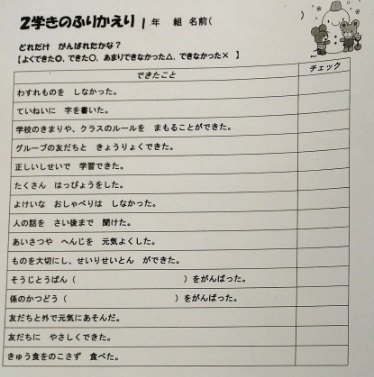 2学きのふりかえり 1年 組 名前( )
どれだけ がんばれたかな?
【よくできた◎, できた○, あまりできなかった△, できなかった× 】
できたこと チェック
わすれものを しなかった。
ていねいに 字を書いた。
学校のきまりや、クラスのルールを まもることができた。
グループの友だちと きょうりょくできた。
正しいしせいで 学習できた。
たくさん はっぴょうをした。
よけいな おしゃべりは しなかった。
人の話を さい後まで 聞けた。
あいさつや へんじを 元気よくした。
ものを大切にし、せいりせいとん ができた。
そうじとうばん( )をがんばった。
係のかつどう( )をがんばった。
友だちと外で元気にあそんだ。
友だちに やさしくできた。
きゅう食をのこさず 食べた。